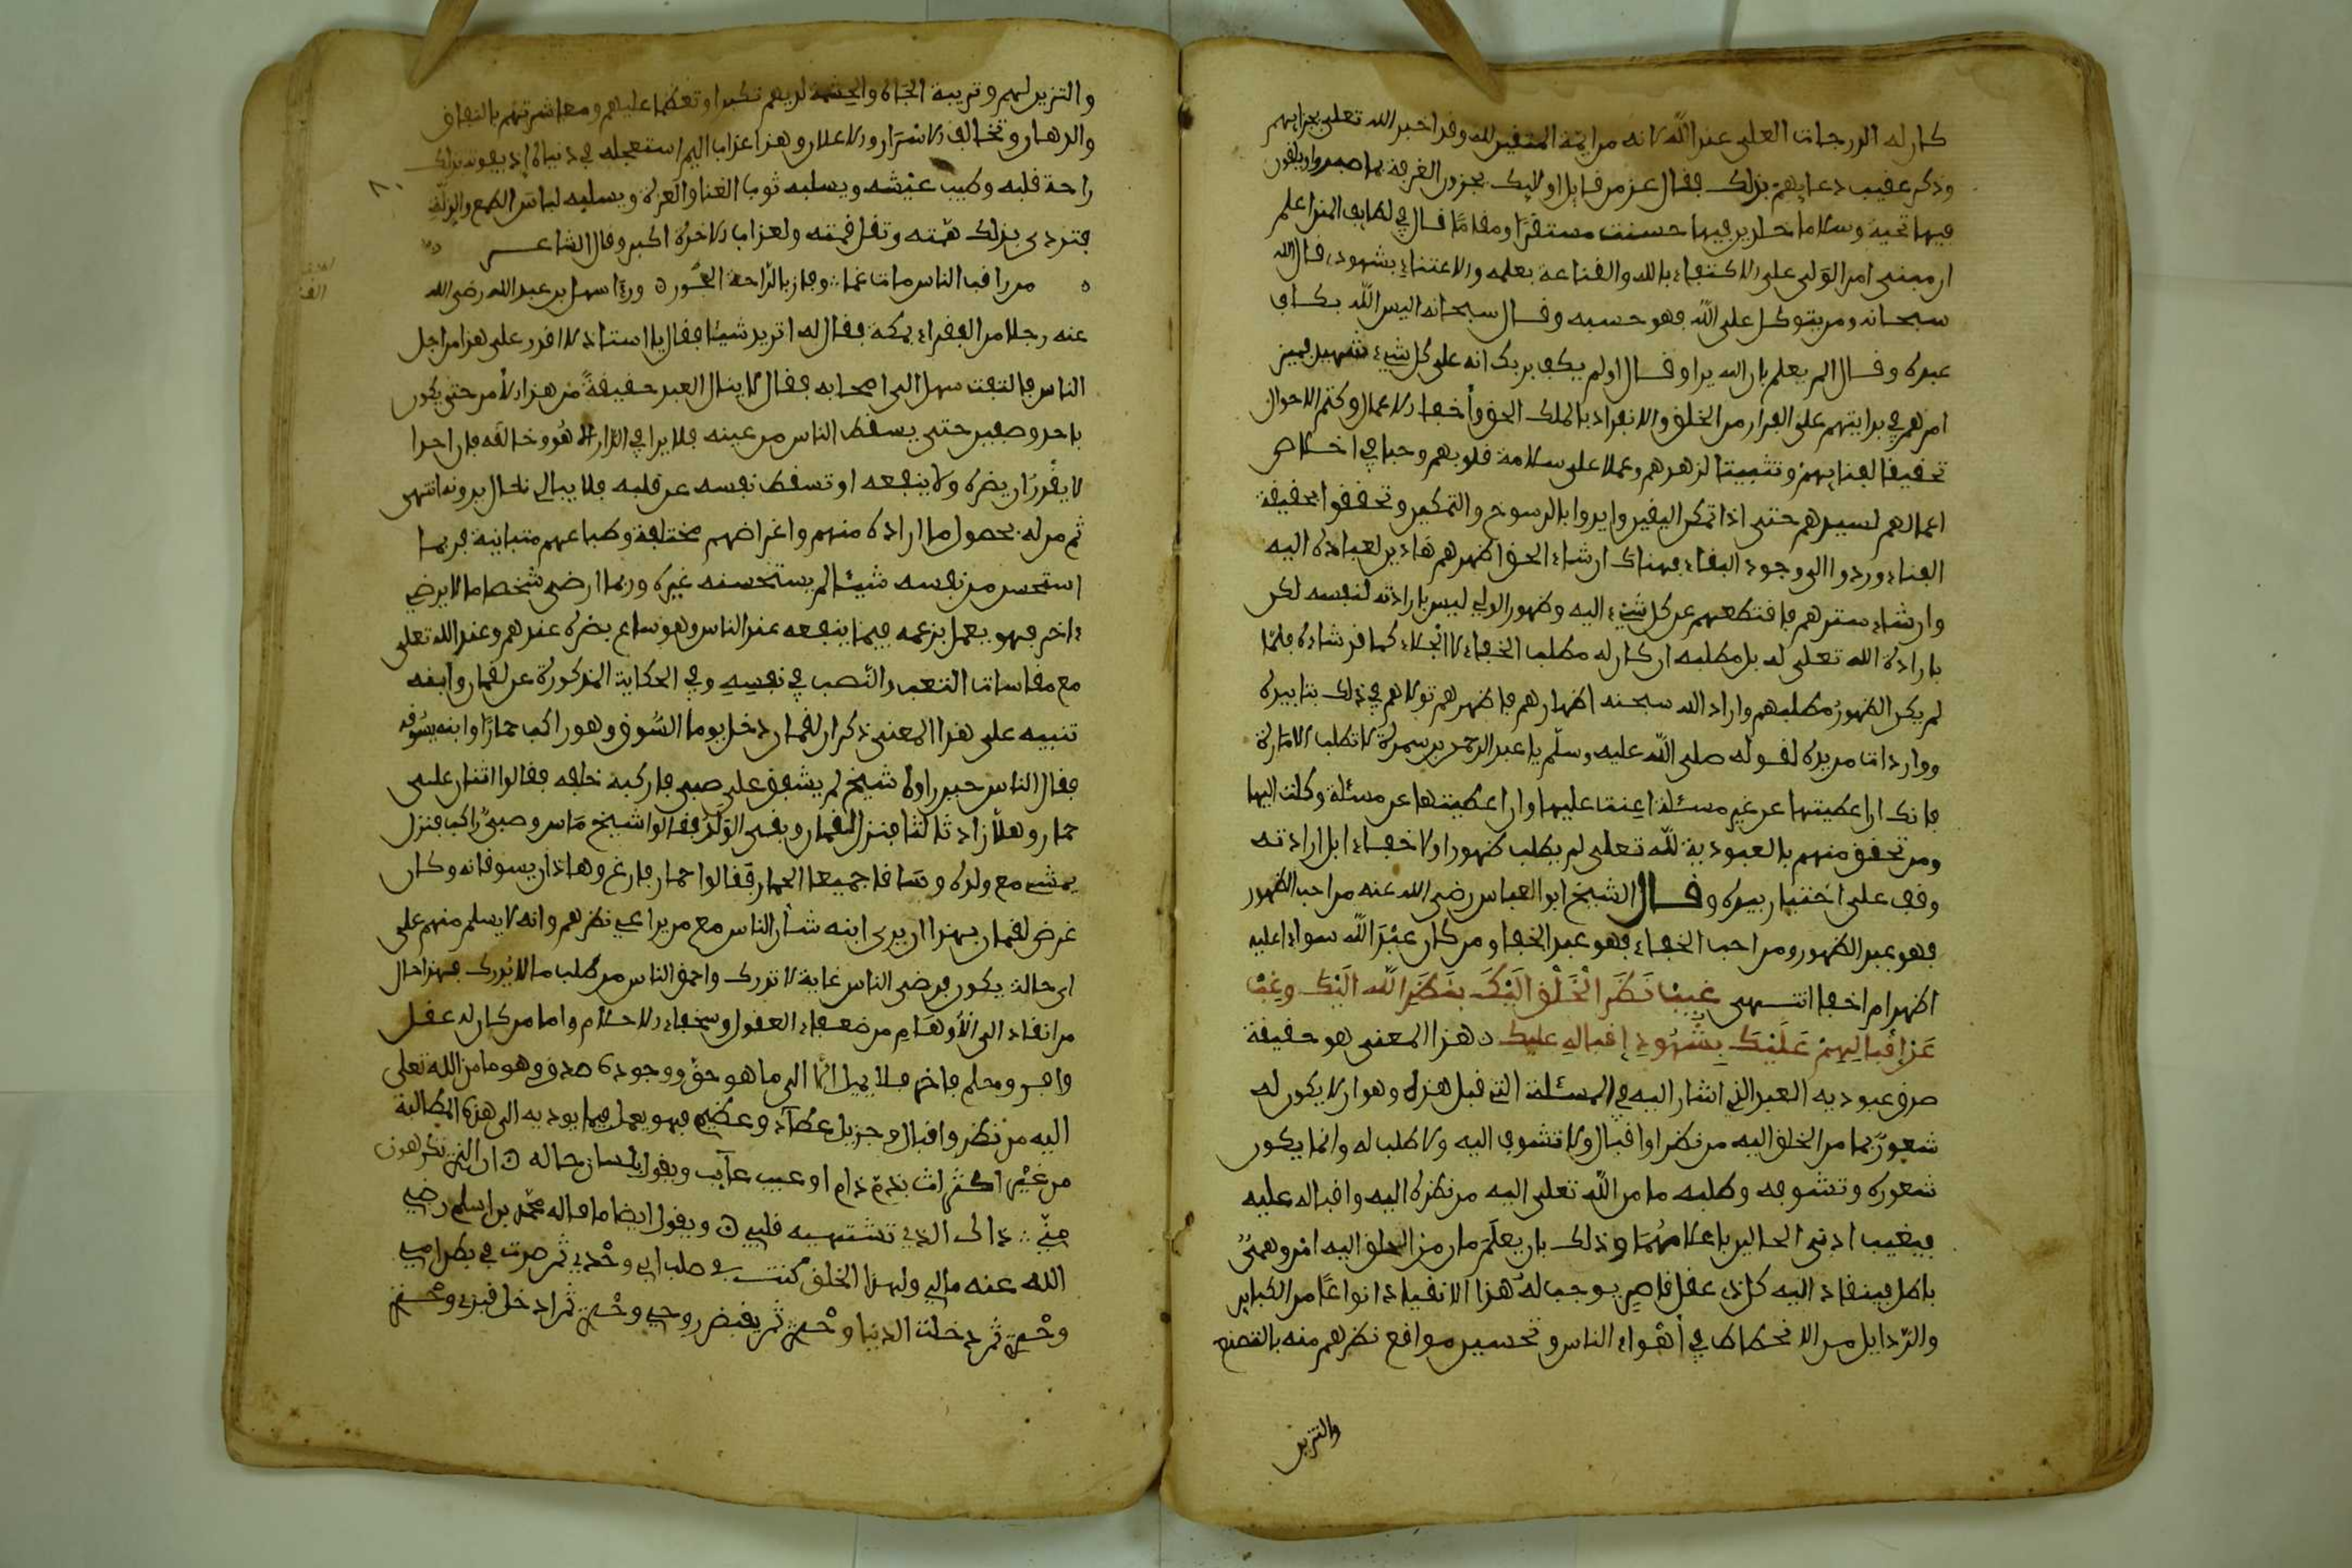 كان له الدرجات العلى عند الله لانه من ايمة المتقين لله وقد اخبر الله تعلى بجزايهم
وذكر عقيب دعايهم بذلك فقال عز من قايل اولايك يجزون الغرفة بما صبروا ويلقون
فيها تحية وسلاما خالدين فيها حسنت مستقرا ومقاما قال في لطايف المنن اعلم
ان مبنى امر الولي على الاكتفاء بالله والقناعة بعلمه والاعتناء بشهوده قال الله
سبحانه ومن يتوكل على الله فهو حسبه وقال سبحانه اليس الله بكاف
عبده وقال الم يعلم بان الله يرا وقال اولم يكف بربك انه على كل شيء شهيد فمبنى
امرهم في بدايتهم على الفرار من الخلق والانفراد بالملك الحق وأخفاء الاعمال وكتم الاحوال
تحقيقا لفنايهم وتثبيتا لزهدهم وعملا على سلامة قلوبهم وحبا في اخلاص
اعمالهم لسيدهم حتى اذا تمكن اليقين وايدوا بالرسوخ والتمكين وتحققوا بحقيقة
الفناء وردوا الى وجود البقاء فهناك ان شاء الحق اظهرهم هادين لعباده اليه
وان شاء سترهم فاقتطعهم عن كل شيء اليه وظهور الولي ليس بارادته لنفسه لكن
بارادة الله تعلى له بل مطلبه ان كان له مطلب الخفاء لا الجلاء كما قد شاءه فلما
لم يكن الظهور مطلبهم واراد الله سبحنه اظهارهم فاظهرهم تولاهم في ذلك بتاييده
وواردات مزيده لقوله صلى الله عليه وسلم يا عبد الرحمن بن سمرة لا تطلب الامارة
فانك ان اعطيتها عن غير مسئلة اعنت عليها وان اعطيتها عن مسئلة وكلت اليها
ومن تحقق منهم بالعبودية لله تعلى لم يطلب ظهورا ولا خفاء بل ارادته
وقف على اختيار سيده وقال الشيخ ابو العباس رضي الله عنه من احب الظهور
فهو عبد الظهور ومن احب الخفاء فهو عبد الخفا ومن كان عبد الله سواء عليه
اظهر ام اخفا انتهى غيب نظر الخلق اليك بنظر الله اليك وغب
عن إقبالهم عليك بشهود إقباله عليك هذا المعنى هو حقيقة
صدق عبوديه العبد الذي اشار اليه في المسئلة التي قبل هذه وهو ان لا يكون له
شعور بما من الخلق اليه من نظر او اقبال ولا تشوف اليه ولا طلب له وانما يكون
شعوره وتشوفه وطلبه ما من الله تعلى اليه من نظره اليه واقباله عليه
فيغيب ادنى الحالين باعلاهما وذلك بان يعلم ما من الخلق اليه امر وهمي
باطل فينقاد اليه كل ذي عقل قاصر يوجب له هذا الانقياد انواعا من الكباير
والرذايل من الانحطاط في أهواء الناس وتحسين مواقع نظرهم منه بالتصنع
والتزين
والتزين لهم وتربية الجاه والحشمة لديهم تكبرا وتعظما عليهم ومعاشرتهم بالنفاق
والدهان وتخالف الاسرار والاعلان وهذا عذاب اليم استعجله في دنياه اذ يفوته بذلك
راحة قلبه وطيب عيشه ويسلبه ثوب الغنا والعزة ويلبسه لباس الطمع والذلة
فتزدى بذلك همته وتقل قيمته ولعذاب الاخرة اكبر وقال الشاعر
من راقب الناس مات غما وفاز بالراحة الجسور ورءا سهل بن عبد الله رضي الله
عنه رجلا من الفقراء بمكة فقال له اتريد شيئا فقال يا استاذ لا اقدر على هذا من اجل
الناس فالتفت سهل الى اصحابه فقال لا ينال العبد حقيقة من هذا الأمر حتى يكون
باحد وصفين حتى يسقط الناس من عينه فلا يرا في الدار الا هو وخالقه فان احدا
لا يقدر ان يضره ولا ينفعه او تسقط نفسه عن قلبه فلا يبالي باي حال يرونه انتهى
ثم من له بحصول ما اراده منهم واغراضهم مختلفة وطباعهم متباينة فربما
استحسن من نفسه شيئا لم يستحسنه غيره وربما ارضى شخصا ما لا يرضي
ءاخر فهو يعمل بزعمه فيما ينفعه عند الناس وهو ساع بضره عندهم وعند الله تعلى
مع مقاسات التعب والنصب في نفسه وفي الحكاية المذكورة عن لقمان وابنه
تنبيه على هذا المعنى ذكر ان لقمان دخل يوما السوق وهو راكب حمارا وابنه يسوقه
فقال الناس حين راوه شيخ لم يشفق على صبي فاركبه خلفه فقالوا اثنان على
حمار وهلا زاد ثالثا فنزل لقمان وبقي الولد فقالوا شيخ ماش وصبي راكب فنزل
يمشي مع ولده وساقا جميعا الحمار فقالوا حمار فارغ وهاذان يسوقانه وكان
غرض لقمان بهذا ان يري ابنه شأن الناس مع من يراعي نظرهم وانه لا يسلم منهم على
اي حالة يكون فرضى الناس غاية لا تدرك واحمق الناس من طلب ما لا يدرك فهذا حال
من انقاد الى الأوهام من ضعفاء العقول وسخفاء الاحلام واما من كان له عقل
وافر وحلم فاخر فلا يميل انما الى ما هو حق ووجوده صدق وهو ما من الله تعلى
اليه من نظر واقبال وجزيل عطاء وعظيم فهو يعمل فيما يوديه الى هذه المطالبة
من غير اكثراث بذم ذام او عيب عايب ويقول بلسان حاله ان الذي تكرهون
مني ذاك الذي تشتهيه قلبي ويقول ايضا ما قاله محمد بن اسلم رضي
الله عنه مالي ولهذا الخلق كنت في صلب ابي وحدي ثم صرت في بطن امي
وحدي ثم دخلت الدنيا وحدي ثم يقبض روحي وحدي ثم ادخل قبري وحدي